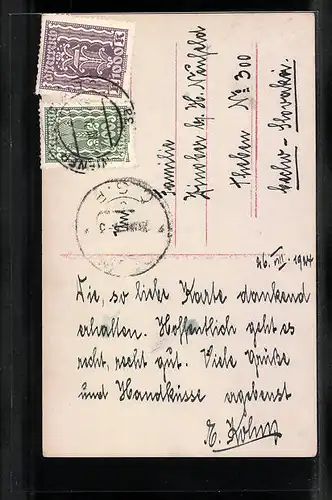 1000 K
WIENER
Familie
Zimber b. H. Neufeld
Theben No. 300
Čecho-Slovakei
26. VII. 1924
Die, so liebe Karte dankend
erhalten. Hoffentlich geht es
recht, recht gut. Viele Grüße
und Handküsse ergebenst